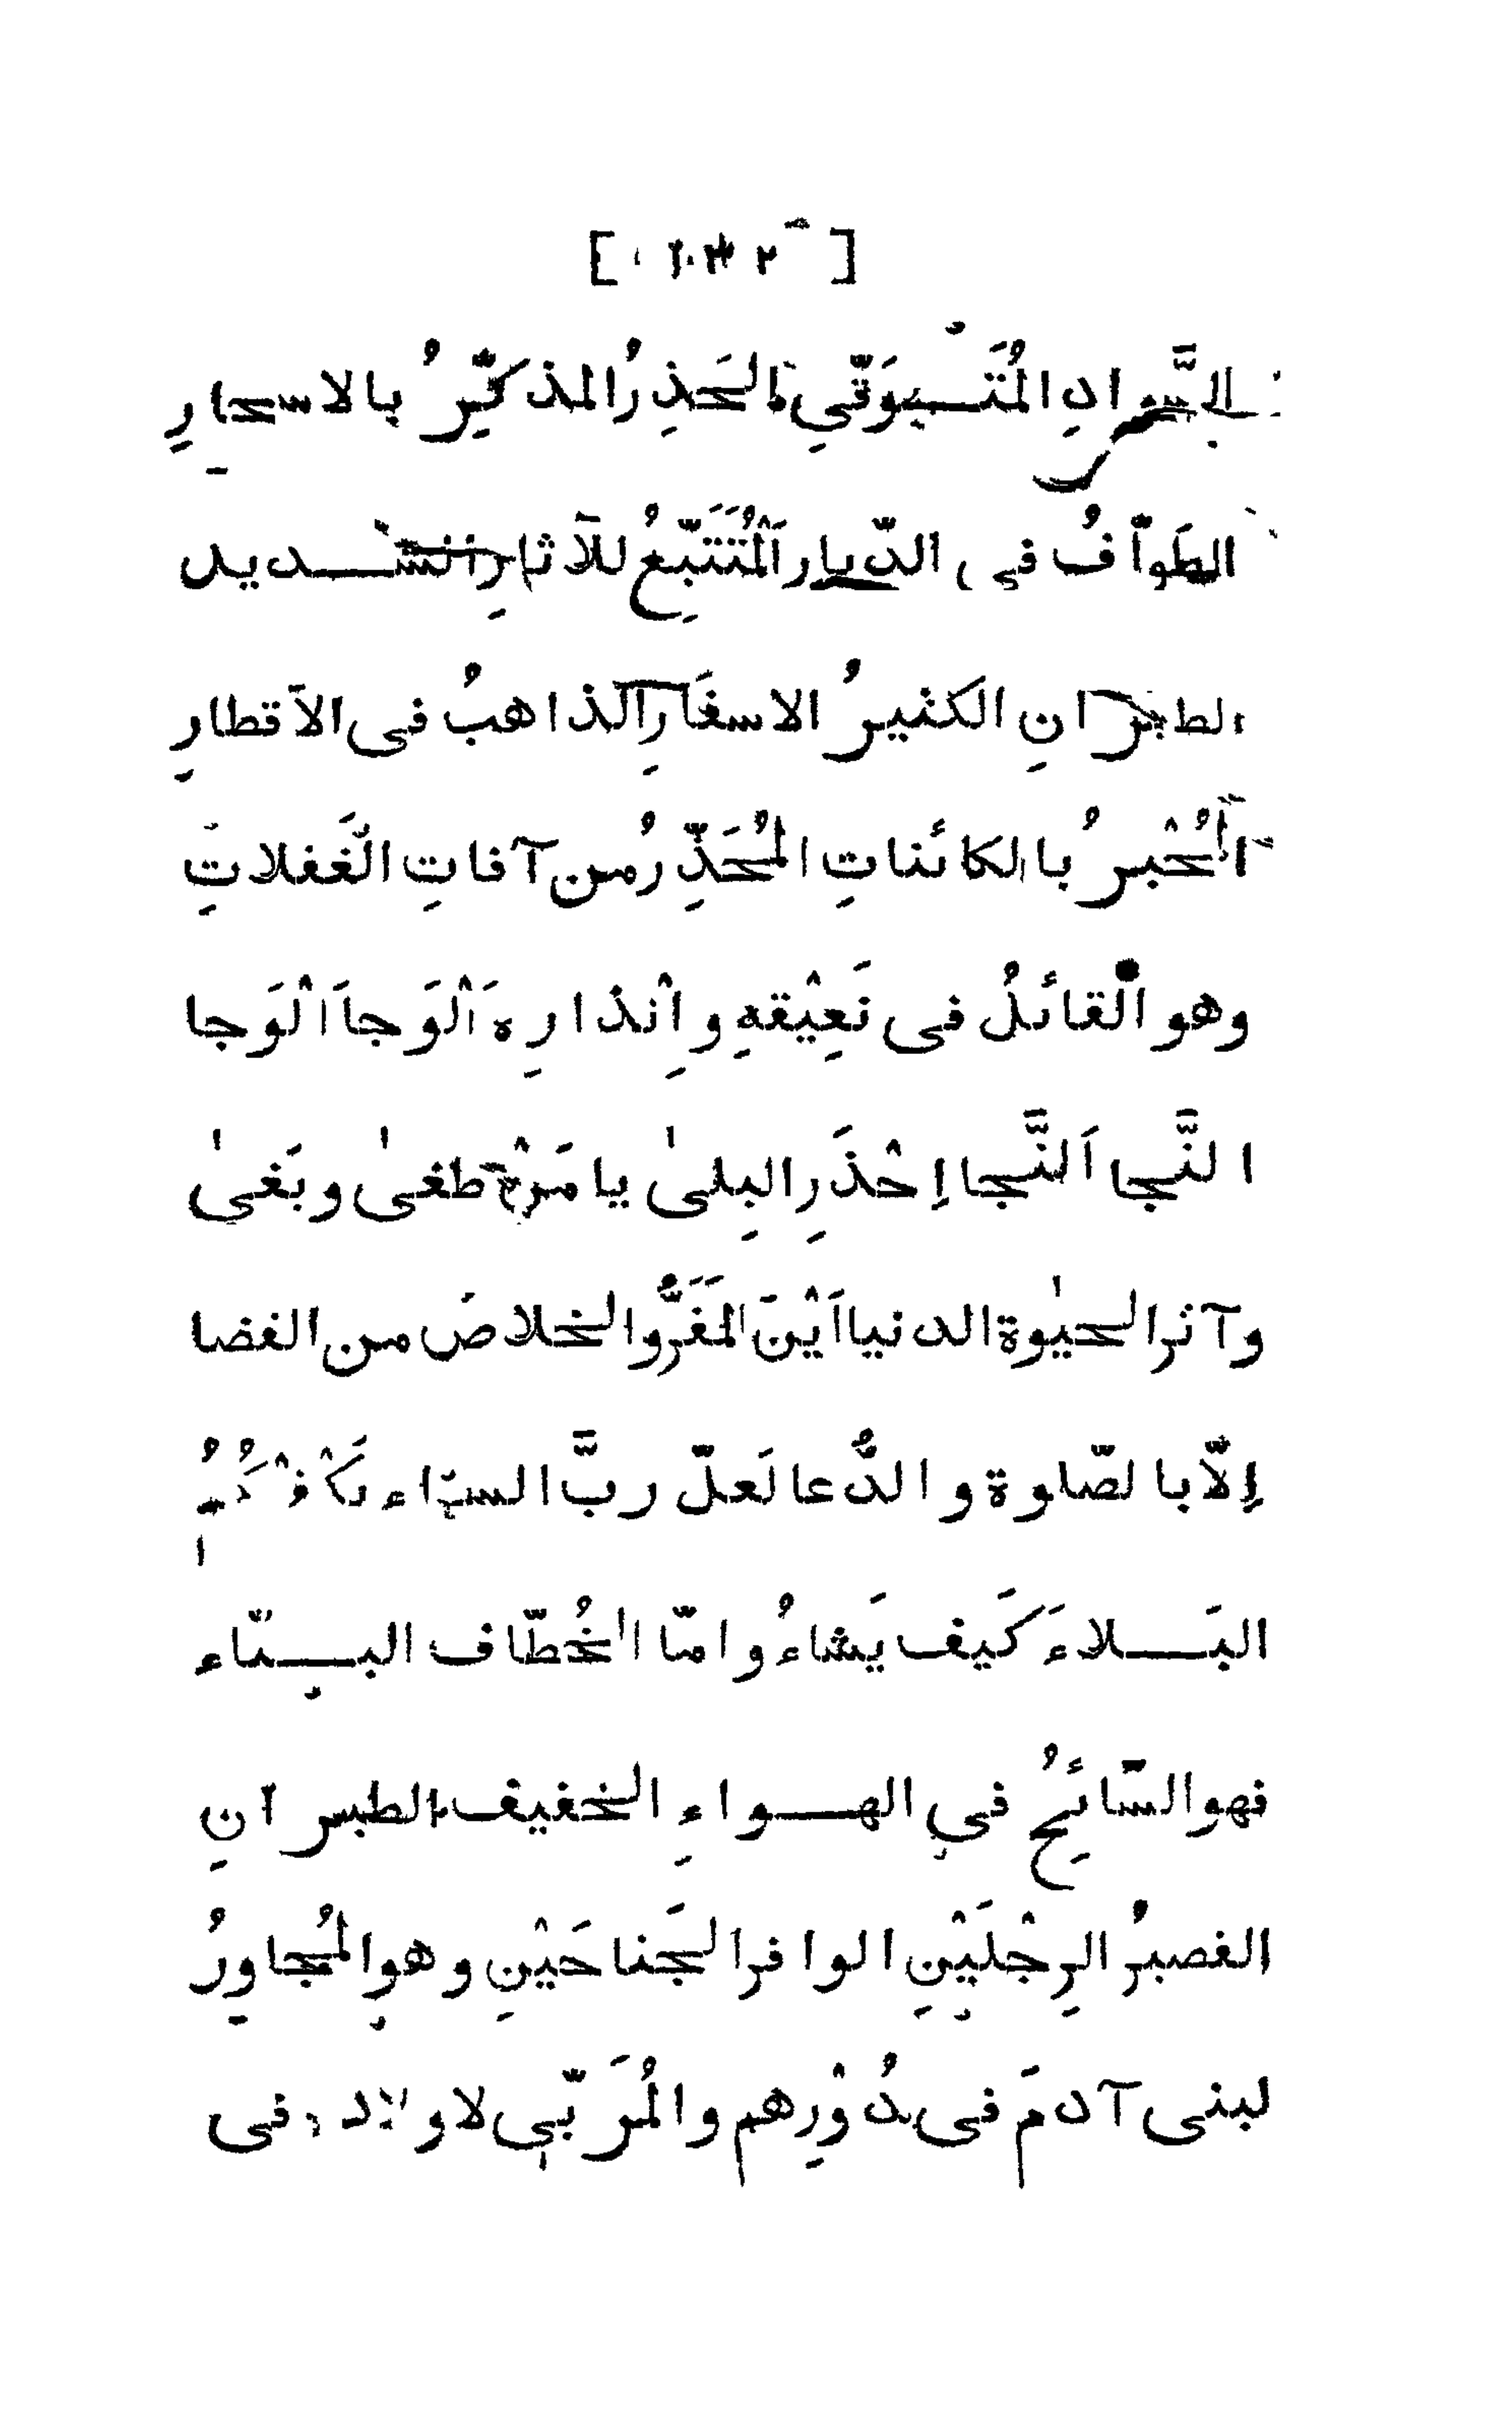 السَّوادِ المُتَوَقّي الحَذِرُ المذكِّرُ بالاسحارِ
الطَوّافُ فى الدّيار اَلْمُتَتَبّعُ للآثارِ الشديد
الطيرانِ الكثيرُ الاسفَارِ الذاهبُ فى الاَقطارِ
اَلْمُخْبرُ بالكائناتِ المُحَذِّرُ من آفاتِ الغَفلاتِ
وهو القائلُ فى نَعِيْقهِ واِنْذارِهِ اَلْوَجاَ اَلْوَجا
النَّجا اَلنَّجا اِحْذَرِ البِلىٰ يا مَنْ طغىٰ وبَغىٰ
وآثر الحيٰوة الدنيا اَيْنَ المَفَرُّ والخلاصُ من القضا
اِلّا بالصّلوة والدُّعا لَعلّ ربَّ السمّاء يَكْفِيْكُمُ
البَلاءَ كَيف يَشاءُ وامّا الخُطّاف البنّاء
فهو السّائحُ في الهواءِ الخفيف الطيرانِ
القصيرُ الرِجْلَيْنِ الوافر الجَناحَيْنِ وهو المُجاوِرُ
لبنى آدمَ فى دُوْرِهم والمُرَبّي لاولاده فى